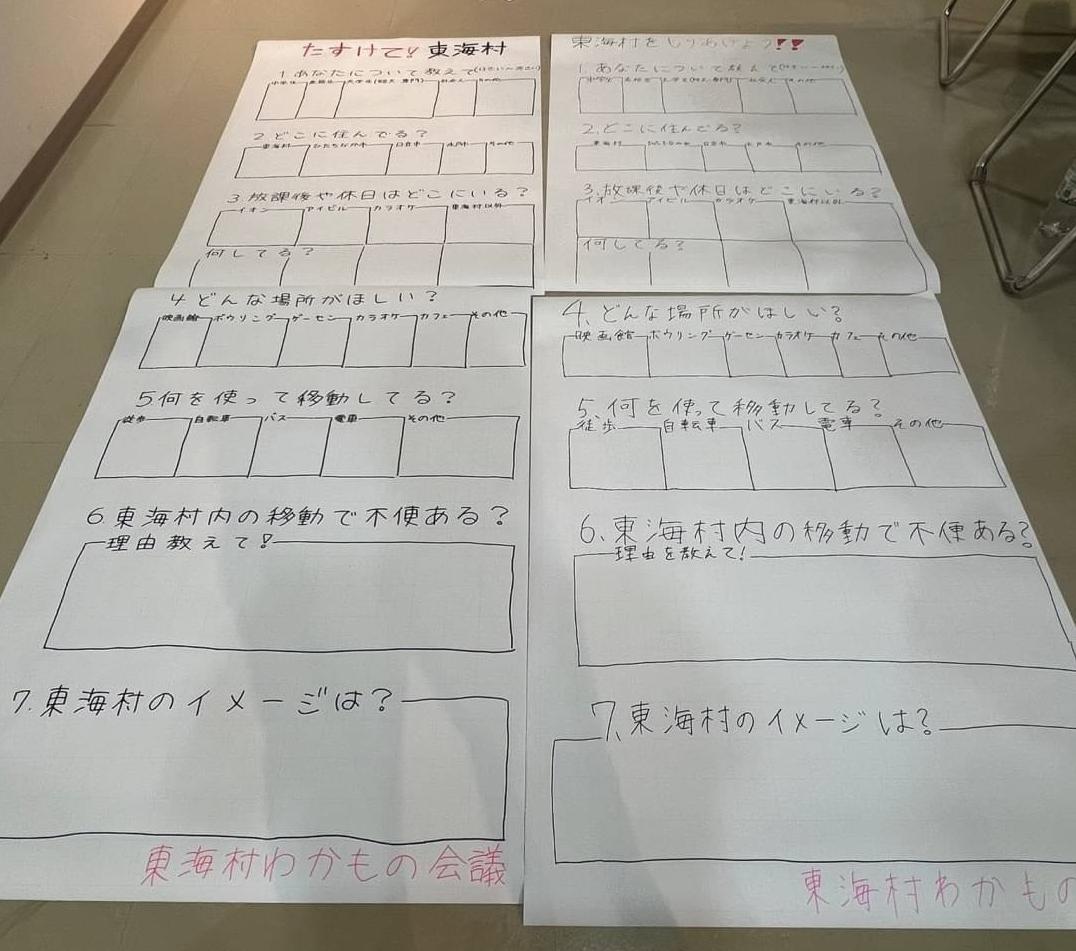 たすけて!! 東海村
1.あなたについて教えて
中学生 高校生 大学生(短大・専門) 社会人 その他
2.どこに住んでる?
東海村 ひたちなか市 日立市 水戸市 その他
3.放課後や休日はどこにいる?
イオン アイビル カラオケ 東海村以外
何してる?
4 どんな場所がほしい?
映画館 ボウリング ゲーセン カラオケ カフェ その他
5何を使って移動してる?
徒歩 自転車 バス 電車 その他
6.東海村内の移動で不便ある?
理由教えて!
7.東海村のイメージは?
東海村わかもの会議
東海村を
1.あなたについて教えて
中学生 高校生 大学生(短大・専門) 社会人 その他
2.どこに住んでる?
東海村 日立市 水戸市 その他
3.放課後や休日はどこにいる?
イオン アイビル カラオケ 東海村以外
何してる?
4、どんな場所がほしい?
映画館 ボウリング ゲーセン カラオケ カフェ その他
5、何を使って移動してる?
徒歩 自転車 バス 電車 その他
6、東海村内の移動で不便ある?
理由を教えて!
7、東海村のイメージは?
東海村わかもの